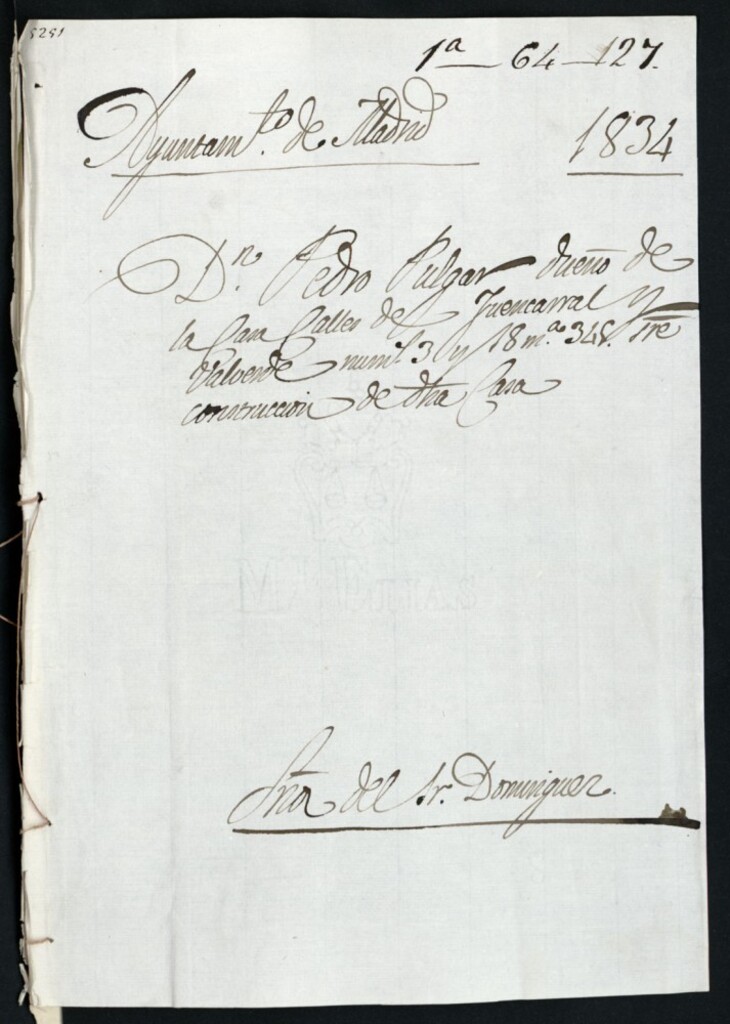 5251
1ª — 64 — 127.
Ayuntam.to de Madrid
1834
Dn. Pedro Pulgar dueño de
la Casa Calles de Fuencarral y
Valverde nums. 3 y 18 m.ª 348. sre
construccion de dha Casa
Sria del Sr. Dominguez.